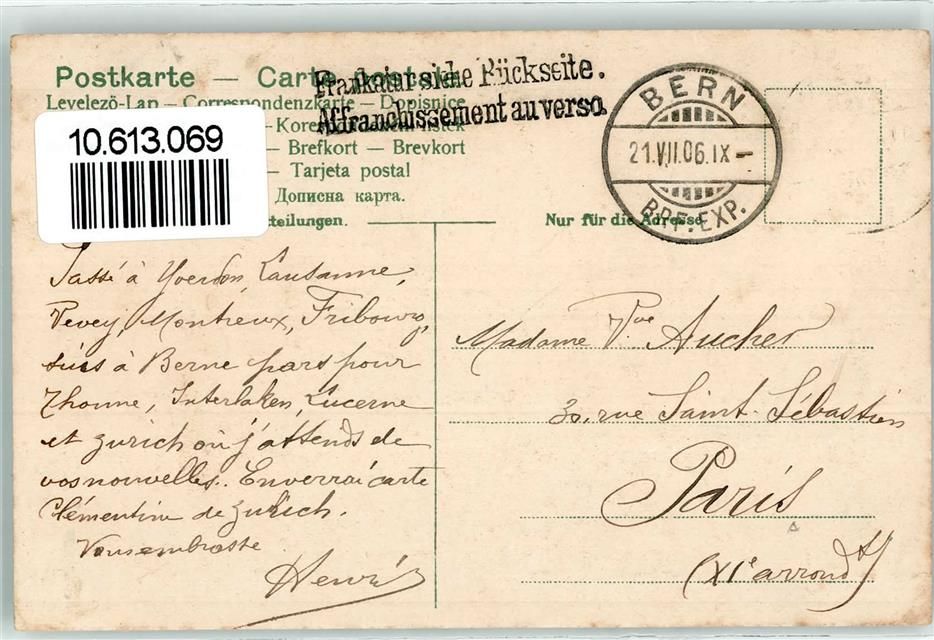 Postkarte — Carte postale
Frankatur siehe Rückseite.
Levelező-Lap — Correspondenzkarte — Dopisnice
Affranchissement au verso.
— Brefkort — Brevkort
— Tarjeta postal
Дописна карта.
10.613.069
BERN
21.VII.06.IX-
BRF. EXP.
Nur für die Adresse
Passé à Yverdon, Lausanne,
Vevey, Montreux, Fribourg,
suis à Berne pars pour
Thoune, Interlaken, Lucerne
et Zurich où j'attends de
vos nouvelles. Enverrai carte
Clémentine de Zurich.
Henri
Madame Vve Aucher
30, rue Saint-Sébastien
Paris
(XIe arrondt)